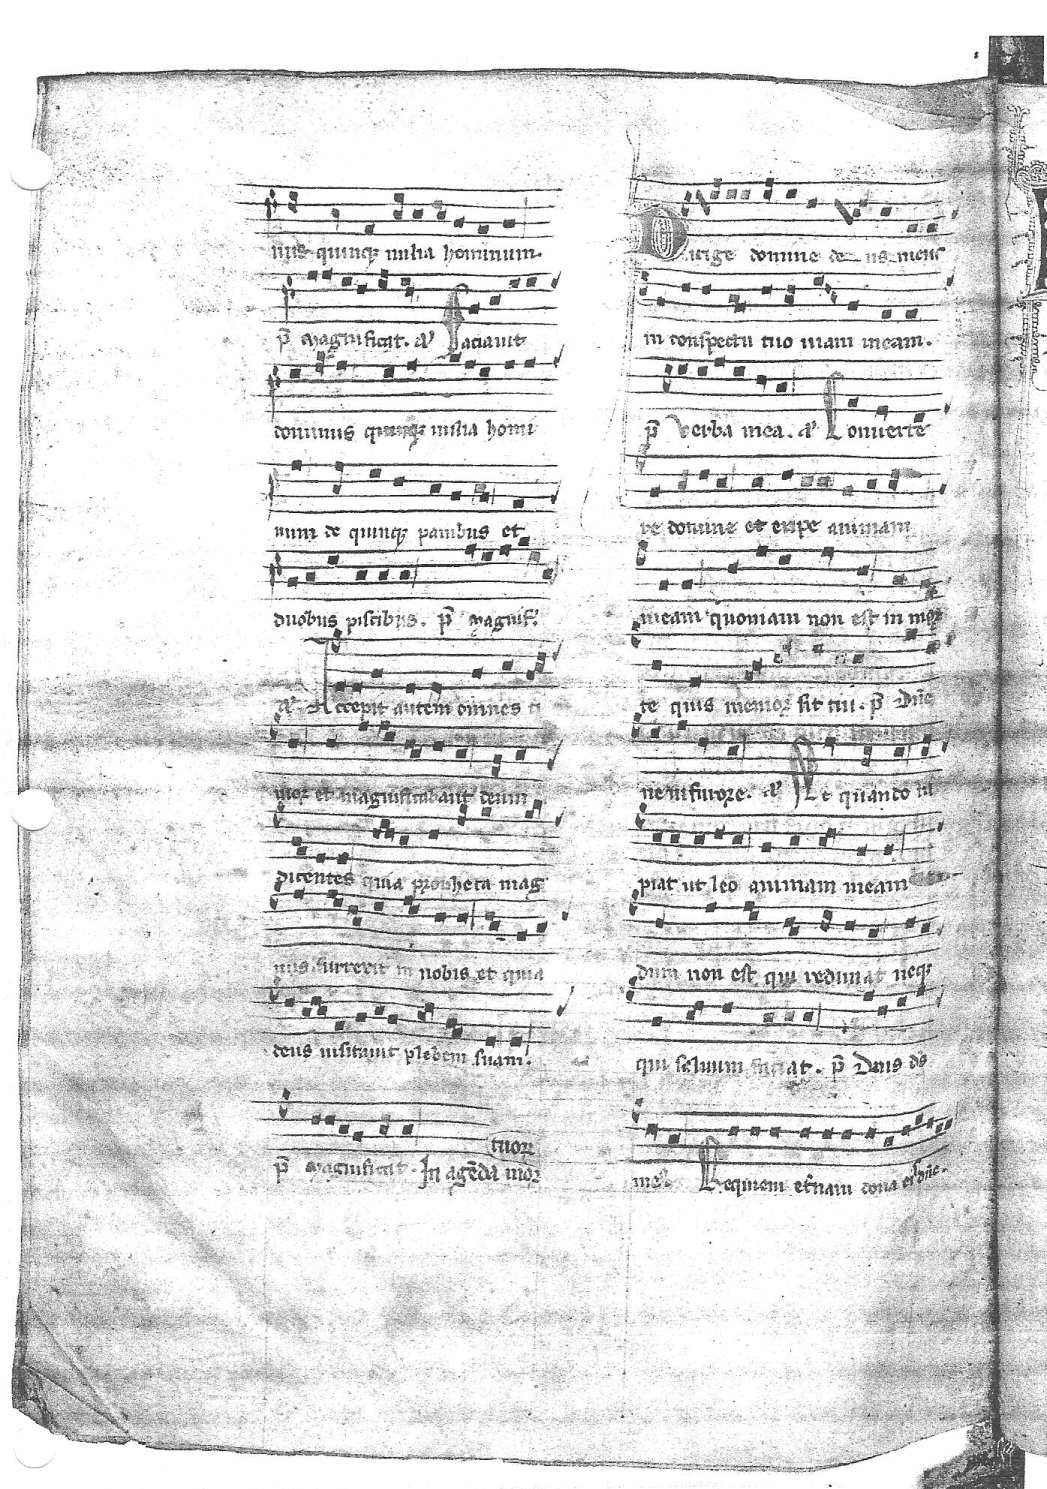 nus quinq; milia hominum.
p̄s Magnificat. añ Saciavit
dominus quinq; milia homi
num de quinq; panibus et
duobus piscibus. p̄s Magnif.
añ Accepit autem omnes ti
mor et magnificabant deum
dicentes quia propheta mag
nus surrexit in nobis et quia
deus visitavit plebem suam.
p̄s Magnificat. In agēda mor
tuor
Dirige domine deus meus
in conspectu tuo viam meam.
p̄s Verba mea. añ Converte
re domine et eripe animam
meam quoniam non est in mor
te quis memor sit tui. p̄s Dn̄e
ne in furore. añ Ne quando ra
piat ut leo animam meam
dum non est qui redimat neq;
qui salvum faciat. p̄s Dn̄s ds
ms. Requiem et̄nam dona eis dn̄e.